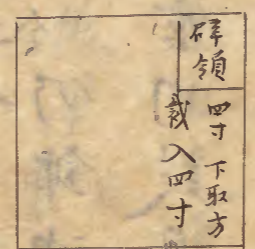 辟領
四寸下取方
裁入四寸